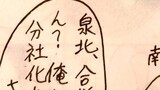 泉北、合
ん?俺
分社化
南